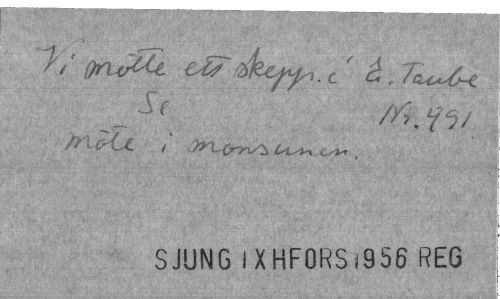 Vi mötte ett skepp.. E. Taube
Se Nr. 491.
möte i monsunen.
SJUNG IXHFORS 1956 REG